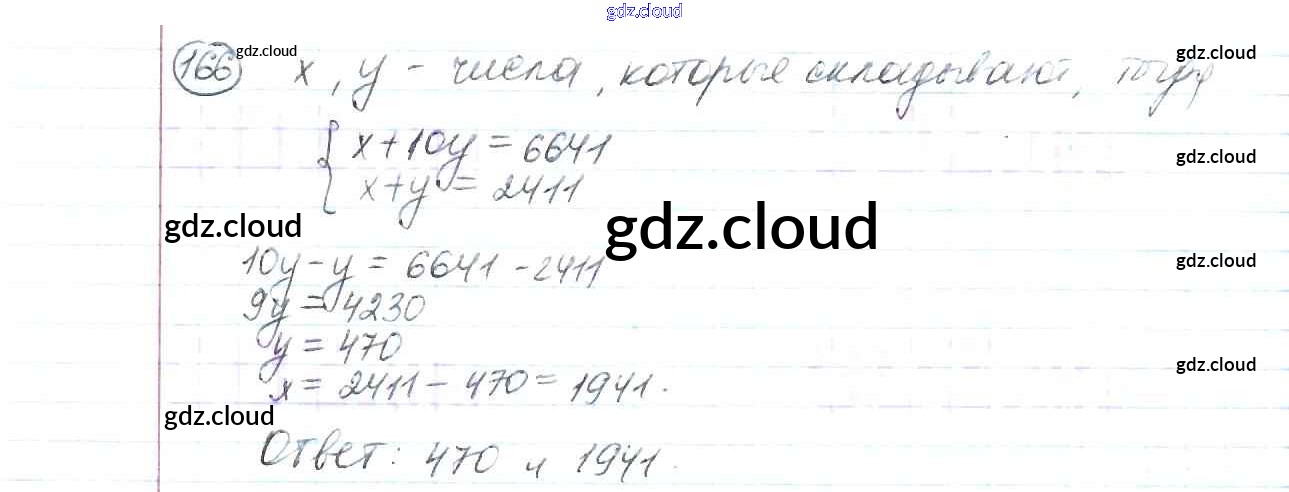 gdz.cloud
166 gdz.cloud x, y - числа, которые складывают, тогда gdz.cloud
x+10y = 6641
gdz.cloud
x+y = 2411
gdz.cloud gdz.cloud
10y-y = 6641-2411 gdz.cloud
9y = 4230
y = 470
gdz.cloud
x = 2411 - 470 = 1941.
gdz.cloud
Ответ: 470 и 1941.